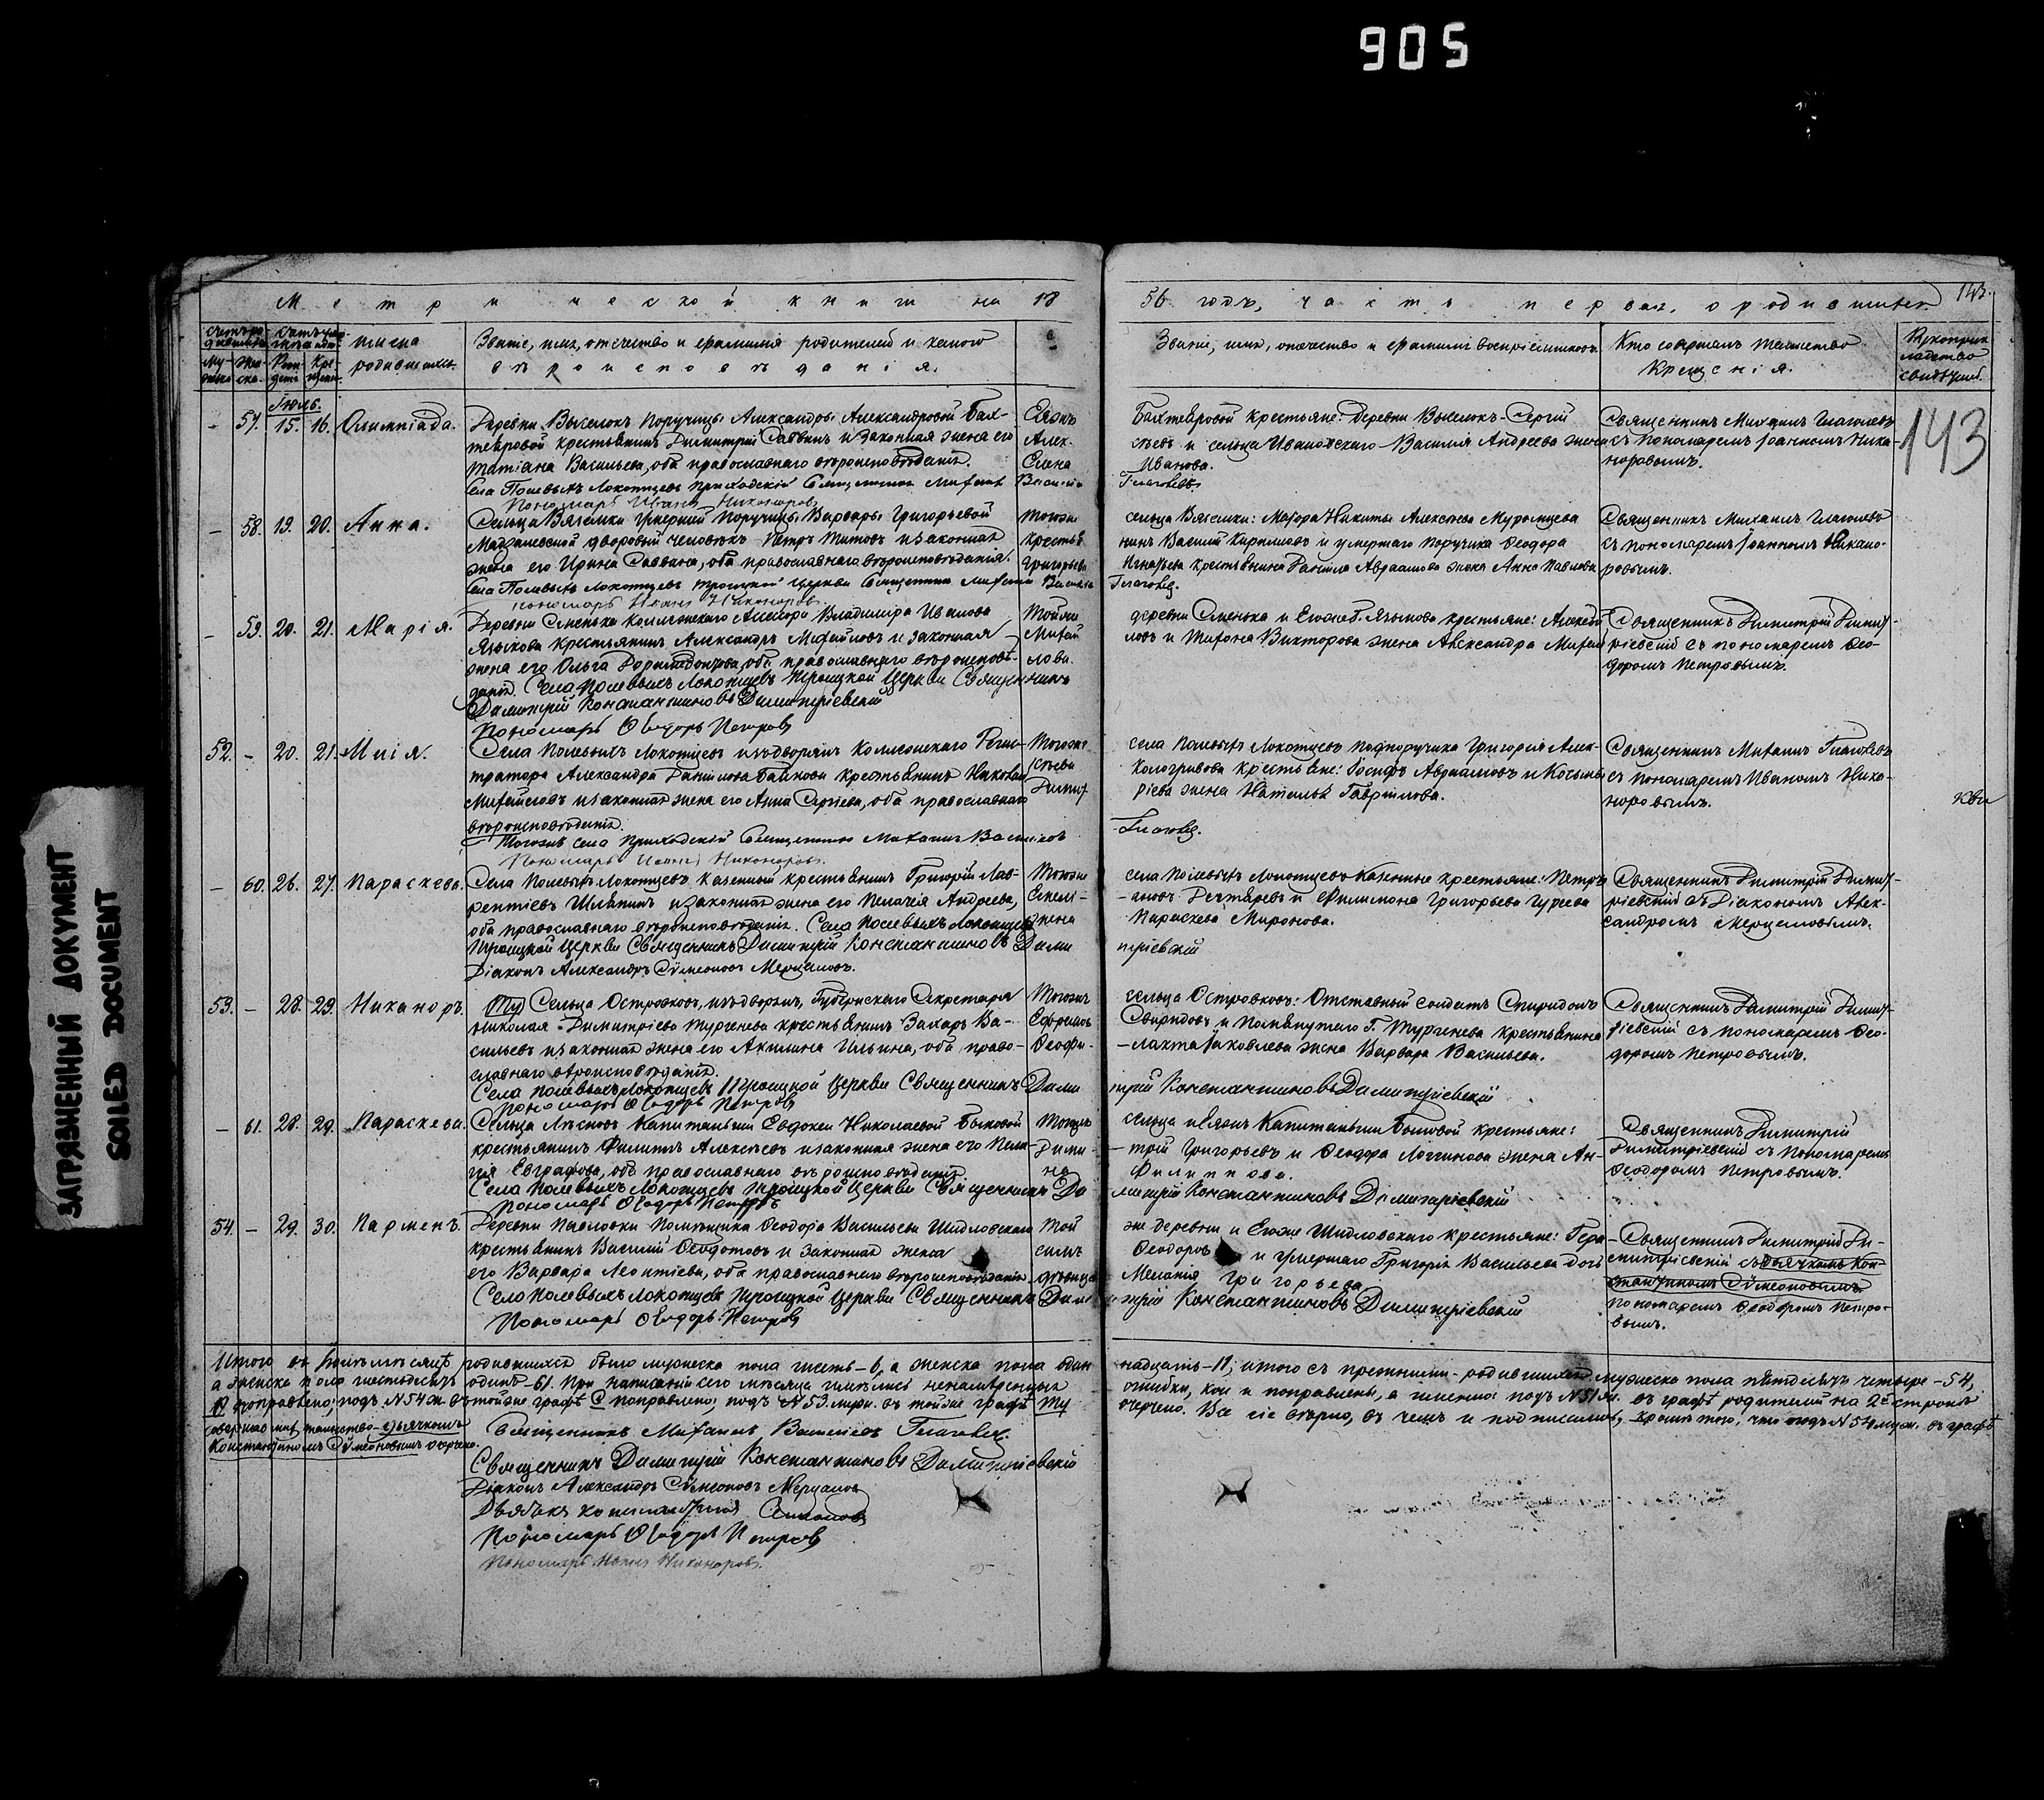 905
М е т р и ч е с к о й к н и г и на 18
56 годъ, ч а с т ь п е р в а я, о р о д и в ш и х с я
143.
имена
родившихся
Званіе, имя, отечество и фамилія родителей и какого
в ѣ р о и с п о в ѣ д а н і я.
Званіе, имя, отечество и фамилія воспріемниковъ
Кто совершалъ таинство
Крещенія.
Іюль.
143
– 57. 15. 16. Олимпіада.
Деревни Выселокъ Поручицы Александры Александровой Бах-
теяровой крестьянинъ Димитрій Саввинъ и законная жена его
Татіана Васильева, оба православнаго вѣроисповѣданія.
Села Полевыхъ Локотцевъ приходскій Священникъ Михаилъ Василіевъ
Пономарь Иванъ Никоноровъ
Бахтеяровой крестьяне: деревни Выселокъ Сергій
Алексѣевъ и сельца Ивановскаго Василія Андреева жена
Елена Иванова.
Глаголевъ.
Священникъ Михаилъ Глаголевъ
съ пономаремъ Іоанномъ Ника-
норовымъ.
– 58. 19. 20. Анна.
Сельца Вяземки умершей Поручицы Варвары Григорьевой
дворовый человѣкъ Петръ Титовъ и законная
жена его Ирина Саввина, оба православнаго вѣроисповѣданія.
Села Полевыхъ Локотцевъ Троицкой Церкви Священникъ Михаилъ Василіевъ
Пономарь Иванъ Никоноровъ.
сельца Вяземки: Маіора Никиты Алексѣева Муромцева
крестьянинъ Василій Кирилловъ и умершаго Поручика Ѳеодора
Игнатьева крестьянина Даніила Авраамова жена Анна Павлова
Глаголевъ.
Священникъ Михаилъ Глаголевъ
съ пономаремъ Іоанномъ Никано-
ровымъ.
– 59. 20. 21. Марія.
Деревни Сменька Коллежскаго Ассесора Владиміра Иванова
Языкова крестьянинъ Александръ Михайловъ и законная
жена его Ольга Доримедонтова, оба православнаго вѣроисповѣ-
данія. Села Полевыхъ Локотцевъ Троицкой Церкви Священникъ
Димитрій Константиновъ Димитріевскій
Пономарь Ѳеодоръ Петровъ
деревни Сменька и Егожеб. Языкова крестьяне: Алексѣй
ловъ и Тихона Викторова жена Александра Михай
лова.
Священникъ Димитрій Димит-
ріевскій съ пономаремъ Ѳео-
доромъ Петровымъ.
52. – 20. 21. Илія.
Села Полевыхъ Локотцевъ изъ дворянъ Коллежскаго Регис-
тратора Александра Данилова Байкова крестьянинъ Николай
Михайловъ и законная жена его Анна Сергіева, оба православнаго
вѣроисповѣданія.
Тогожъ села Приходскій Священникъ Михаилъ Василіевъ
Пономарь Иванъ Никоноровъ.
села Полевыхъ Локотцевъ Подпоручика Григорія Алек-
сѣева Кологривова крестьяне: Іосифъ Авраамовъ и Косьмы
Димитріева жена Наталья Гавріилова.
Глаголевъ.
Священникъ Михаилъ Глаголевъ
съ пономаремъ Иваномъ Нико-
норовымъ.
– 60. 26. 27. Параскева.
Села Полевыхъ Локотцевъ казенный крестьянинъ Григорій Лав-
рентіевъ Шляпинъ и законная жена его Пелагея Андреева,
оба православнаго вѣроисповѣданія. Села Полевыхъ Локотцевъ
Троицкой Церкви Священникъ Димитрій Константиновъ Дими
тріевскій
Діаконъ Александръ Сѵмеоновъ Мерцаловъ.
села Полевыхъ Локотцевъ казенные крестьяне: Петръ
Дехтяревъ и Филимона Григорьева Гуреева
жена Параскева Миронова.
Священникъ Димитрій Димит-
ріевскій съ Діакономъ Алек-
сандромъ Мерцаловымъ.
53. – 28. 29. Никаноръ.
Ту Сельца Островковъ, изъ дворянъ, Губернскаго Секретаря
Николая Димитріева Тургенева крестьянинъ Захаръ Ва-
сильевъ и законная жена его Акилина Ильина, оба право-
славнаго вѣроисповѣданія.
Села Полевыхъ Локотцевъ Троицкой Церкви Священникъ Дими
трій Константиновъ Димитріевскій
Пономарь Ѳеодоръ Петровъ
сельца Островковъ: Отставный солдатъ Спиридонъ
Свиридовъ и Помянутаго Г. Тургенева крестьянина
Ѳеофилакта Іаковлева жена Варвара Васильева.
Священникъ Димитрій Димит-
ріевскій съ пономаремъ Ѳео-
доромъ Петровымъ.
– 61. 28. 29. Параскева.
Сельца Лясковъ Капитанши Евдокеи Николаевой Быковой
крестьянинъ Филиппъ Алексѣевъ и законная жена его Пела-
гія Евграфова, оба православнаго вѣроисповѣданія
Села Полевыхъ Локотцевъ Троицкой Церкви Священникъ Ди
митрій Константиновъ Димитріевскій
Пономарь Ѳеодоръ Петровъ
сельца Капитанши Быковой крестьяне:
Дими-трій Григорьевъ и Ѳеодора Логгинова жена Ан-
на Филиппова.
Священникъ Димитрій
Димитріевскій съ Пономаремъ
Ѳеодоромъ Петровымъ.
54. – 29. 30. Парменъ.
Деревни Павловки Помѣщика Ѳеодора Васильева Шидловскаго
крестьянинъ Василій Ѳеодотовъ и законная жена
его Варвара Леонтіева, оба православнаго вѣроисповѣданія.
Село Полевыхъ Локотцевъ Троицкой Церкви Священникъ Дими
трій Константиновъ Димитріевскій
Пономарь Ѳеодоръ Петровъ
Той же деревни и Егоже Шидловскаго крестьяне: Гера-
симъ Ѳеодоровъ и умершаго Григорія Васильева дочь
дѣвица Меланія Григорьева
Священникъ Димитрій Ди-
митріевскій съ дьячкомъ Кон-
стантиномъ Сѵмеоновымъ
пономаремъ Ѳеодоромъ Петро-
вымъ.
Итого въ Іюлѣ мѣсяцѣ родившихся было мужеска пола шесть – 6, а женска пола один надцать – 11; итого съ прежними родившимися мужеска пола пятьдесятъ четыре – 54,
а женска пола шестьдесятъ одинъ – 61. При написаніи сего мѣсяца имѣлись ненамѣренныя ошибки, кои и поправлены, а именно: подъ N 51 м. въ графѣ родителей на 2й строкѣ
поправлено; подъ N 54 ж. въ тойже графѣ С поправлено; подъ N 53. муж. въ тойже графѣ Ту очерчено. Все сіе вѣрно, въ чемъ и подписался, кромѣ того, что подъ N 54 муж. въ графѣ
совершавшихъ таинство – дьячкомъ
Константиномъ Сѵмеоновымъ очерчено.
Священникъ Михаилъ Василіевъ Глаголевъ.
Священникъ Димитрій Константиновъ Димитріевскій
Діаконъ Александръ Сѵмеоновъ Мерцаловъ
Дьячекъ Константинъ Симеоновъ
Пономарь Ѳеодоръ Петровъ
Пономарь Иванъ Никоноровъ.
ЗАГРЯЗНЕННЫЙ ДОКУМЕНТ
SOILED DOCUMENT